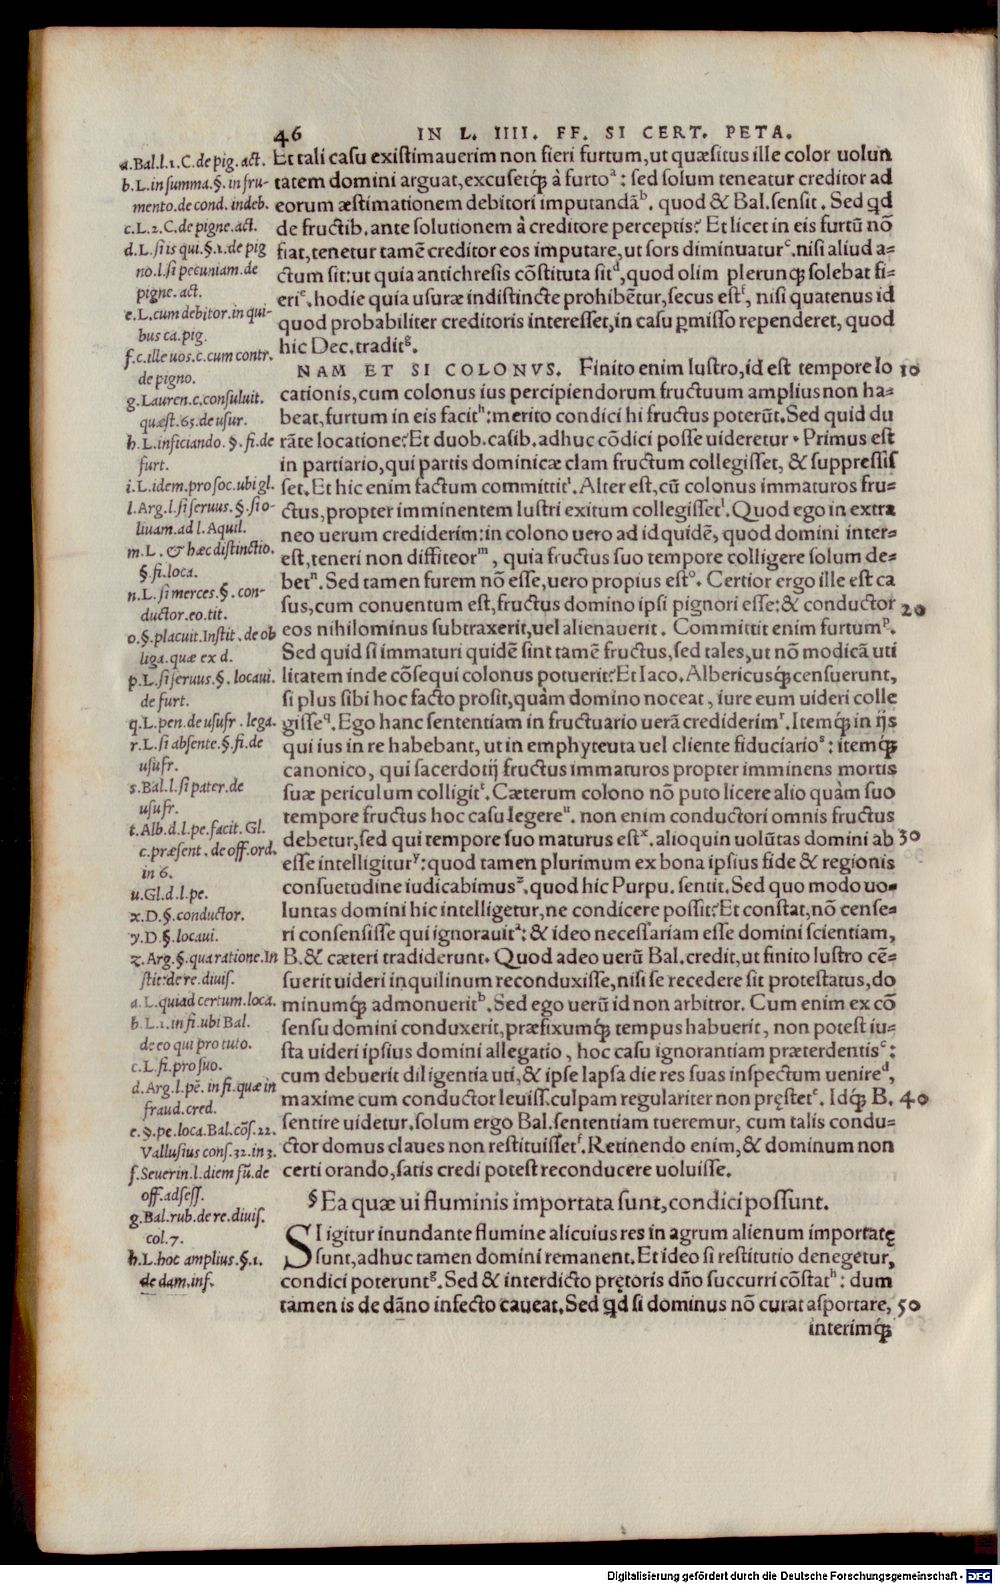 46 IN L. IIII. FF. SI CERT. PETA.
Et tali casu existimauerim non fieri furtum, ut quæsitus ille color uolun
tatem domini arguat, excusetq́; à furto a: sed solum teneatur creditor ad
eorum æstimationem debitori imputandā b. quod & Bal. sensit. Sed qd
de fructib. ante solutionem à creditore perceptis? Et licet in eis furtū nō
fiat, tenetur tamē creditor eos imputare, ut sors diminuatur c. nisi aliud a=
ctum sit: ut quia antichresis cōstituta sit d, quod olim plerunq; solebat fi=
eri e. hodie quia usuræ indistincte prohibētur, secus est f, nisi quatenus id
quod probabiliter creditoris interesset, in casu ꝑmisso rependeret, quod
hic Dec. tradit g.
NAM ET SI COLONVS. Finito enim lustro, id est tempore lo 10
cationis, cum colonus ius percipiendorum fructuum amplius non ha=
beat, furtum in eis facit h: merito condici hi fructus poterūt. Sed quid du
rāte locatione? Et duob. casib. adhuc cōdici posse uideretur. Primus est
in partiario, qui partis dominicæ clam fructum collegisset, & suppressis
set. Et hic enim factum committit i. Alter est, cū colonus immaturos fru=
ctus, propter imminentem lustri exitum collegisset l. Quod ego in extra
neo uerum crediderim: in colono uero ad id quidē, quod domini inter=
est, teneri non diffiteor m, quia fructus suo tempore colligere solum de=
bet n. Sed tamen furem nō esse, uero propius est o. Certior ergo ille est ca
sus, cum conuentum est, fructus domino ipsi pignori esse: & conductor 20
eos nihilominus subtraxerit, uel alienauerit. Committit enim furtum p.
Sed quid si immaturi quidē sint tamē fructus, sed tales, ut nō modicā uti
litatem inde cōsequi colonus potuerit? Et Iaco. Albericusq́; censuerunt,
si plus sibi hoc facto prosit, quàm domino noceat, iure eum uideri colle
gisse q. Ego hanc sententiam in fructuario uerā crediderim r. Itemq́; in ijs
qui ius in re habebant, ut in emphyteuta uel cliente fiduciario s: itemq́;
canonico, qui sacerdotij fructus immaturos propter imminens mortis
suæ periculum colligit t. Cæterum colono nō puto licere alio quàm suo
tempore fructus hoc casu legere u. non enim conductori omnis fructus
debetur, sed qui tempore suo maturus est x. alioquin uolūtas domini ab 30
esse intelligitur y: quod tamen plurimum ex bona ipsius fide & regionis
consuetudine iudicabimus z. quod hic Purpu. sentit. Sed quo modo uo=
luntas domini hic intelligetur, ne condicere possit? Et constat, nō cense=
ri consensisse qui ignorauit a: & ideo necessariam esse domini scientiam,
B. & cæteri tradiderunt. Quod adeo uerū Bal. credit, ut finito lustro cē=
suerit uideri inquilinum reconduxisse, nisi se recedere sit protestatus, do
minumq́; admonuerit b. Sed ego uerū id non arbitror. Cum enim ex cō
sensu domini conduxerit, præfixumq́; tempus habuerit, non potest iu=
sta uideri ipsius domini allegatio, hoc casu ignorantiam præterdentis c:
cum debuerit diligentia uti, & ipse lapsa die res suas inspectum uenire d,
maxime cum conductor leuiss. culpam regulariter non pręstet e. Idq́; B. 40
sentire uidetur. solum ergo Bal. sententiam tueremur, cum talis condu=
ctor domus claues non restituisset f. Retinendo enim, & dominum non
certiorando, satis credi potest reconducere uoluisse.
§ Ea quæ ui fluminis importata sunt, condici possunt.
SI igitur inundante flumine alicuius res in agrum alienum importatę
sunt, adhuc tamen domini remanent. Et ideo si restitutio denegetur,
condici poterunt g. Sed & interdicto prętoris dño succurri cōstat h: dum
tamen is de dāno infecto caueat. Sed qd si dominus nō curat asportare, 50
interimq́;
a. Bal. l. 1. C. de pig. act.
b. L. in summa. §. in fru-
mento. de cond. indeb.
c. L. 2. C. de pigne. act.
d. L. si is qui. §. 1. de pig
no. l. si pecuniam. de
pigne. act.
e. L. cum debitor. in qui-
bus ca. pig.
f. c. ille uos. c. cum contr.
de pigno.
g. Lauren. c. consuluit.
quæst. 65. de usur.
h. L. inficiando. §. fi. de
furt.
i. L. idem. pro soc. ubi gl.
l. Arg. l. si seruus. §. si o-
liuam. ad l. Aquil.
m. L. & hæc distinctio.
§. fi. loca.
n. L. si merces. §. con-
ductor. eo. tit.
o. §. placuit. Instit. de ob
liga. quæ ex d.
p. L. si seruus. §. locaui.
de furt.
q. L. pen. de usufr. lega.
r. L. si absente. §. fi. de
usufr.
s. Bal. l. si pater. de
usufr.
t. Alb. d. l. pe. facit. Gl.
c. præsent. de off. ord.
in 6.
u. Gl. d. l. pe.
x. D. §. conductor.
y. D. §. locaui.
z. Arg. §. qua ratione. In
stit: de re. diuis.
a. L. quiad certum. loca.
b. L. 1. in fi. ubi Bal.
de eo qui pro tuto.
c. L. fi. pro suo.
d. Arg. l. pē. in fi. quæ in
fraud. cred.
e. §. pe. loca. Bal. cōs. 22.
Vallusius cons. 32. in 3.
f. Seuerin. l. diem fū. de
off. adsess.
g. Bal. rub. de re. diuis.
col. 7.
h. L. hoc amplius. §. 1.
de dam. inf.
Digitalisierung gefördert durch die Deutsche Forschungsgemeinschaft - DFG